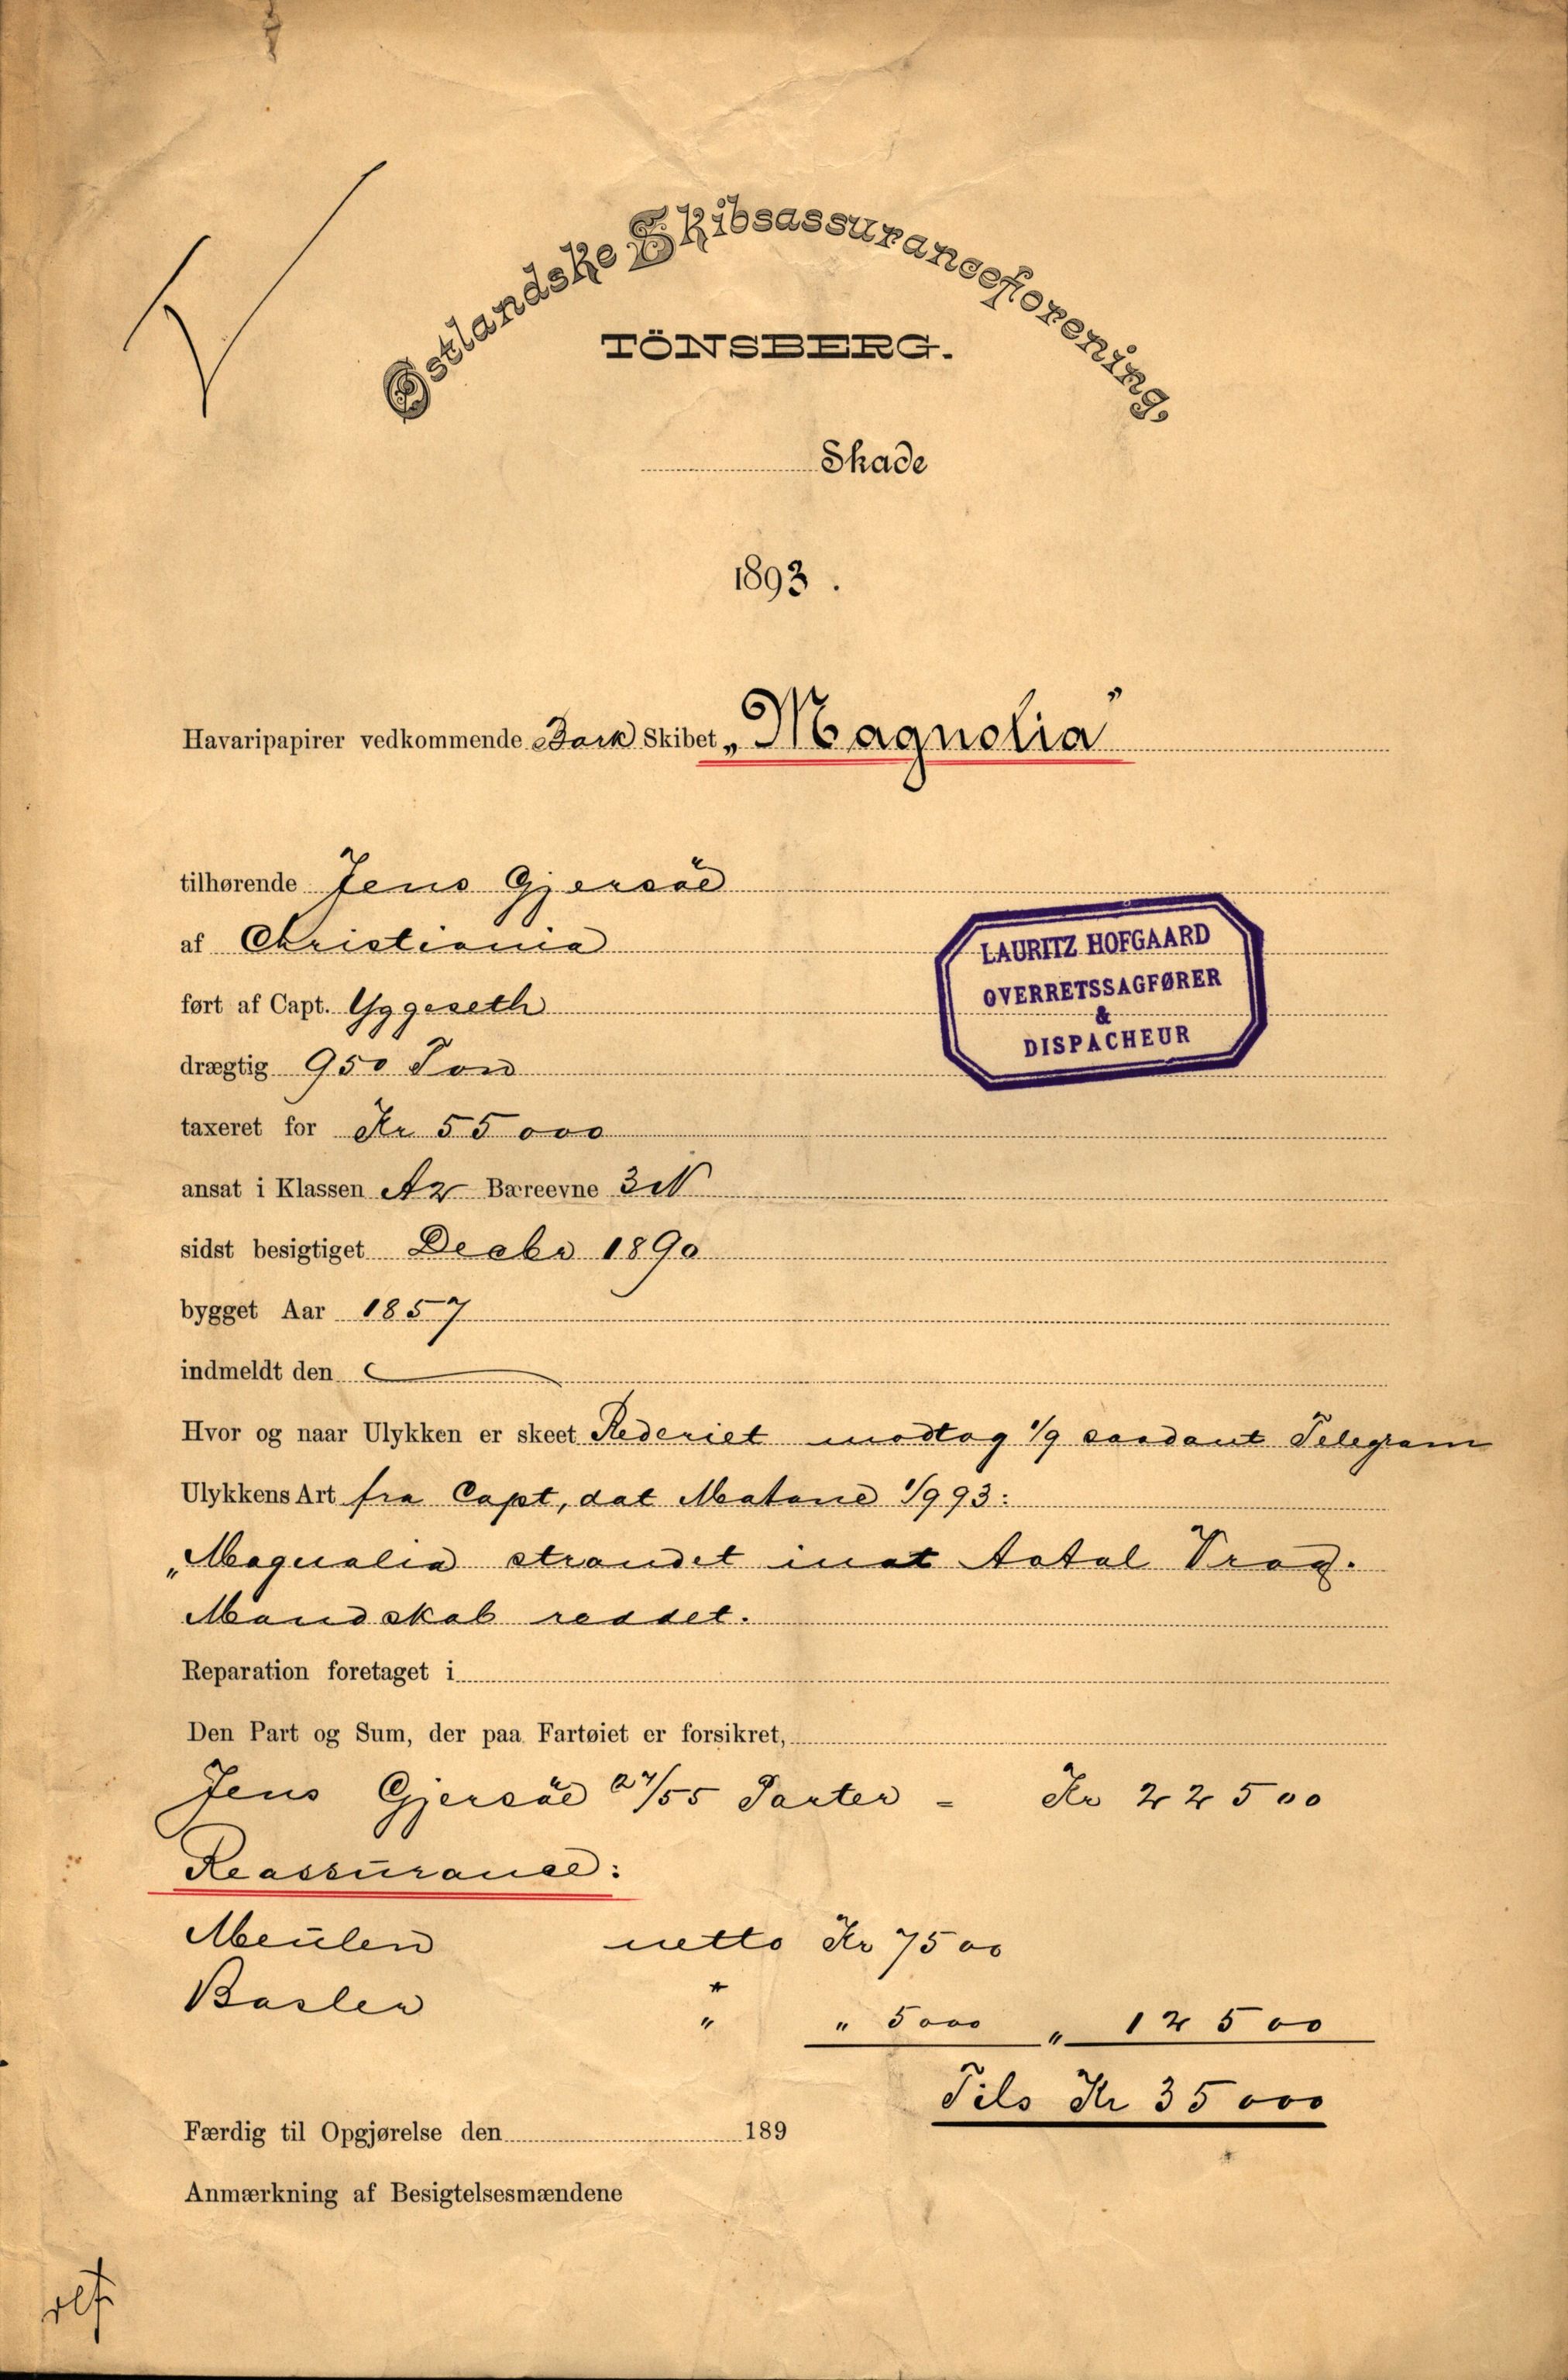 Østlandske Skibsassuranceforening,
TÖNSBERG.
Skade
1893.
Havaripapirer vedkommende Bark Skibet „Magnolia"
tilhørende Jens Gjersöe
af Christiania
ført af Capt. Yggeseth
drægtig 950 Ton
taxeret for Kr 55000
ansat i Klassen A2 Bæreevne 3N
sidst besigtiget Decbr 1890
bygget Aar 1857
indmeldt den
Hvor og naar Ulykken er skeet Rederiet modtog 1/9 saadant Telegram
Ulykkens Art fra Capt, dat Matane 1/9 93:
„Magnolia strandet inat total Vrag.
Mandskab reddet.
Reparation foretaget i
Den Part og Sum, der paa Fartøiet er forsikret,
Jens Gjersöe /55 Parter = Kr 22500
Reassurance:
Meulen netto Kr 7500
Basler " " 5000 " 12500
Tils Kr 35000
Færdig til Opgjørelse den 189
Anmærkning af Besigtelsesmændene
LAURITZ HOFGAARD
OVERRETSSAGFØRER
&
DISPACHEUR